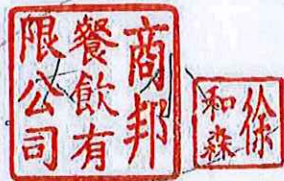 商邦
餐飲有
限公司
徐
和森